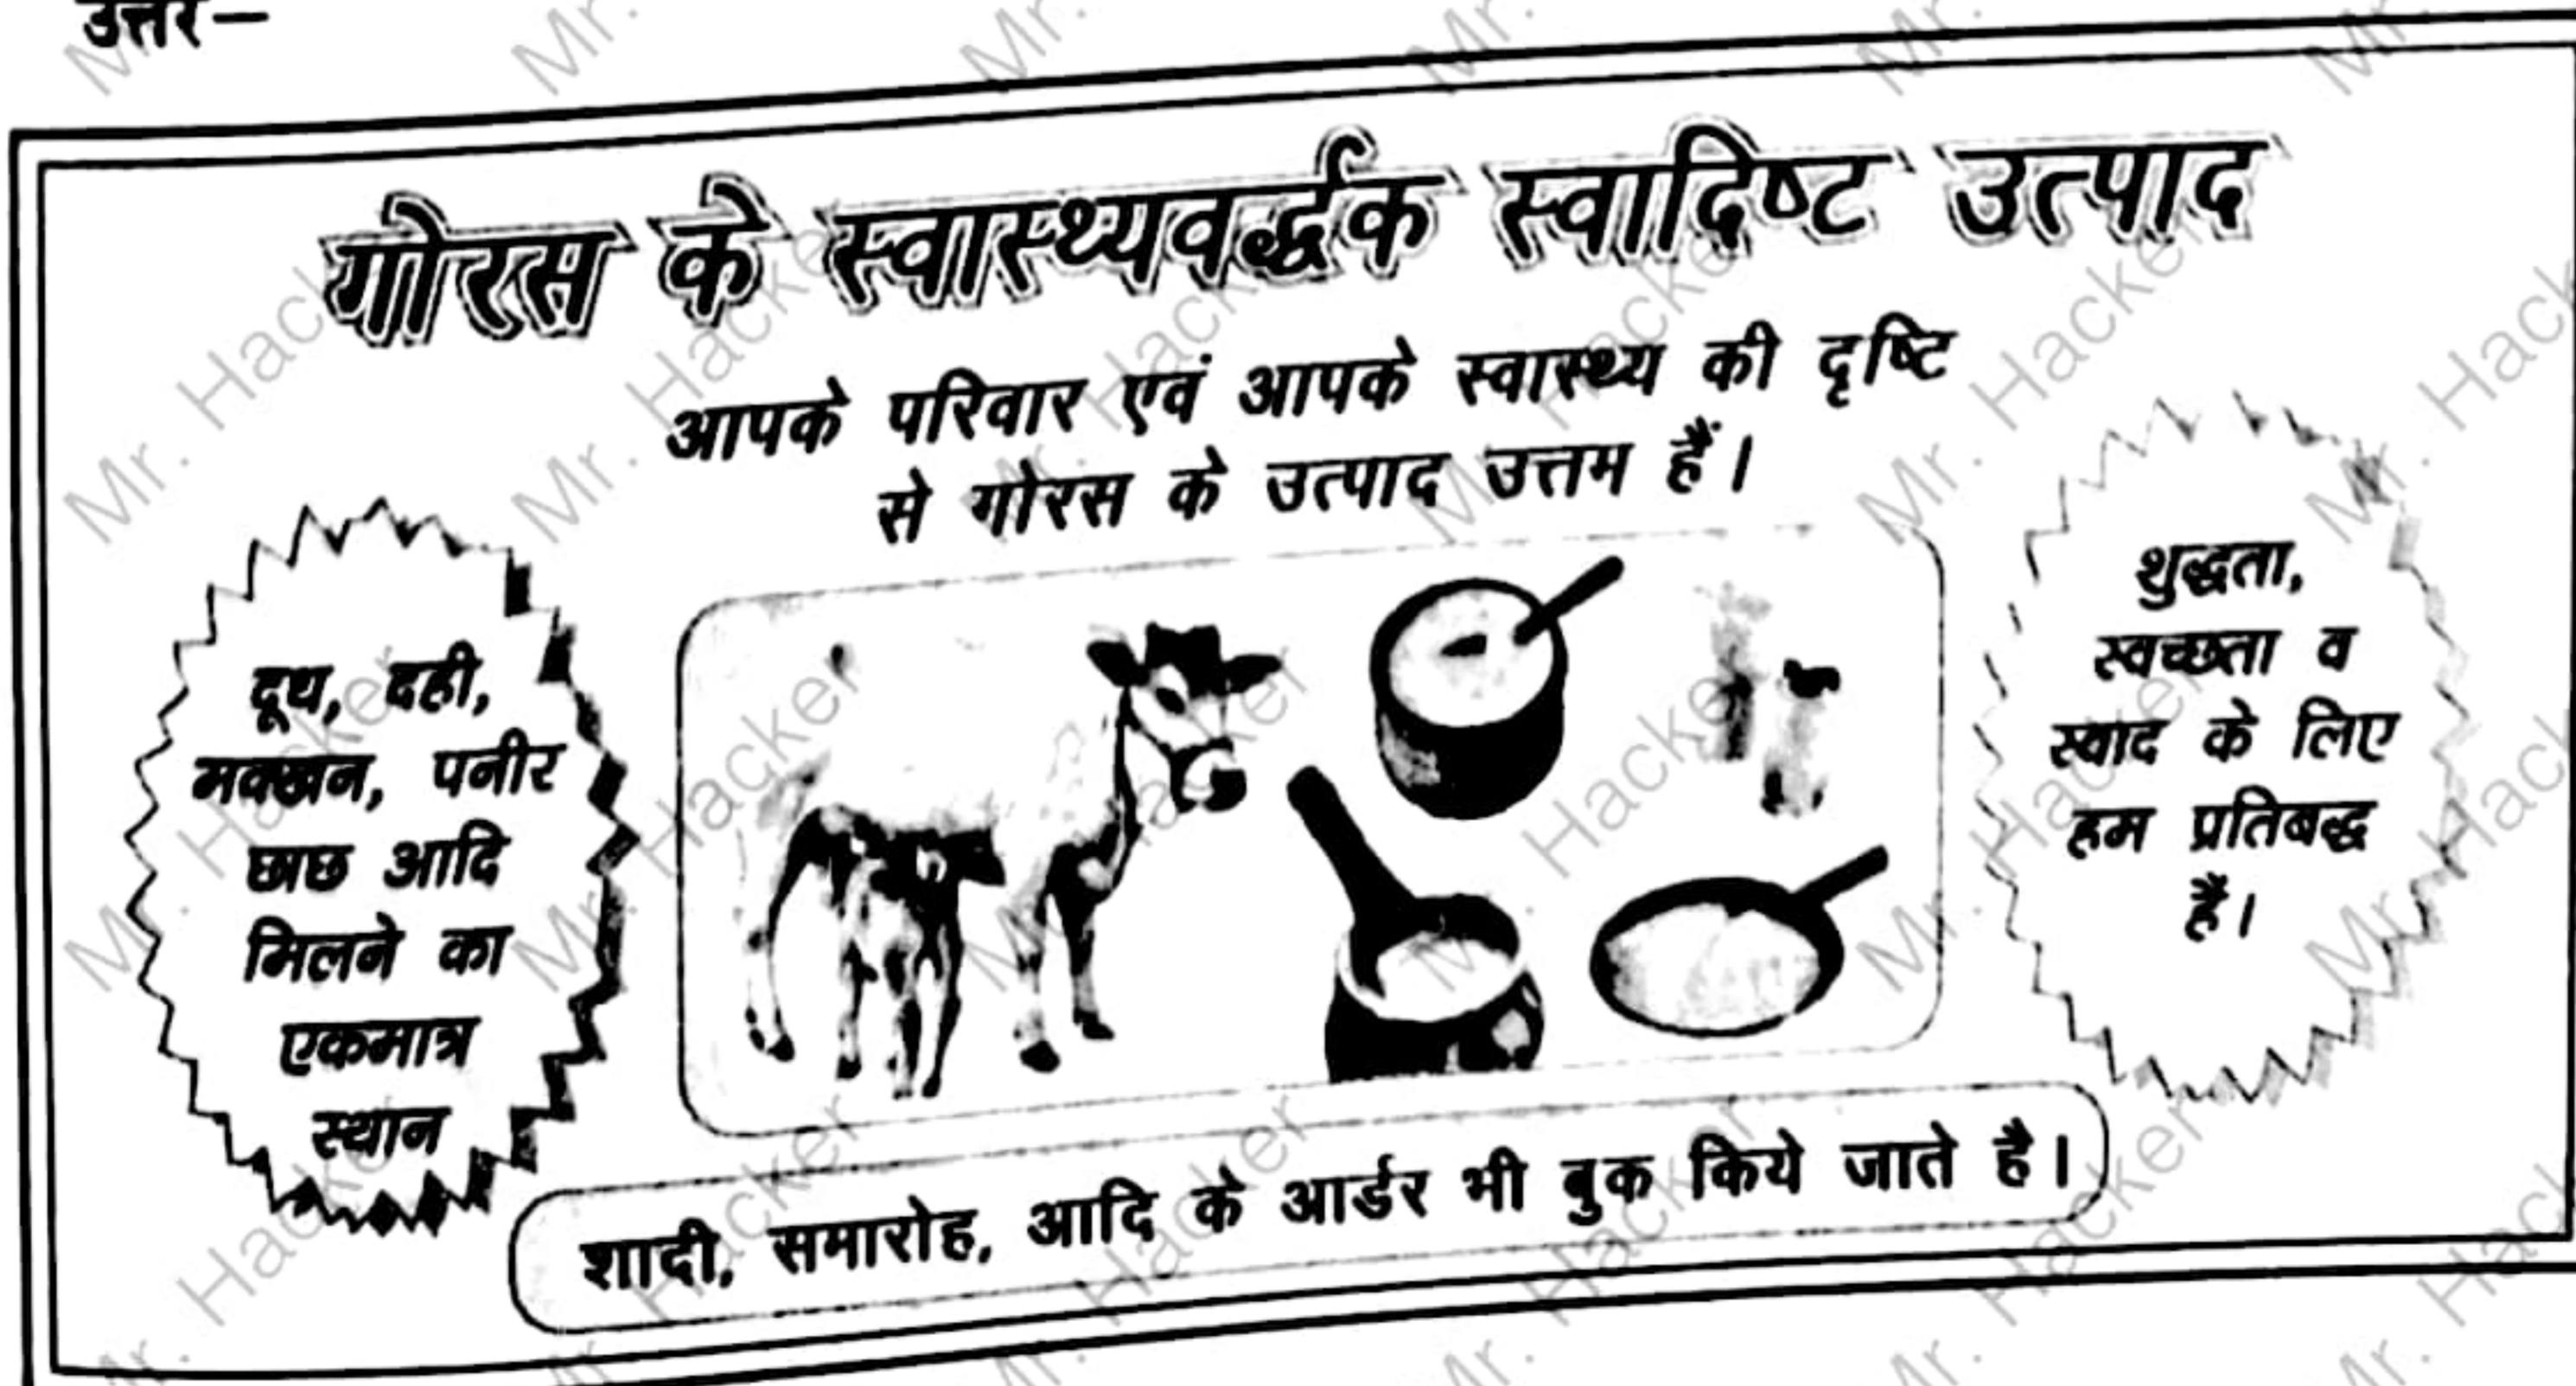 उत्तर—
गोरस के स्वास्थ्यवर्द्धक स्वादिष्ट उत्पाद
आपके परिवार एवं आपके स्वास्थ्य की दृष्टि
से गोरस के उत्पाद उत्तम हैं।
दूध, दही,
मक्खन, पनीर
छाछ आदि
मिलने का
एकमात्र
स्थान
शुद्धता,
स्वच्छता व
स्वाद के लिए
हम प्रतिबद्ध
हैं।
शादी, समारोह, आदि के आर्डर भी बुक किये जाते है।
Mr. Hacker